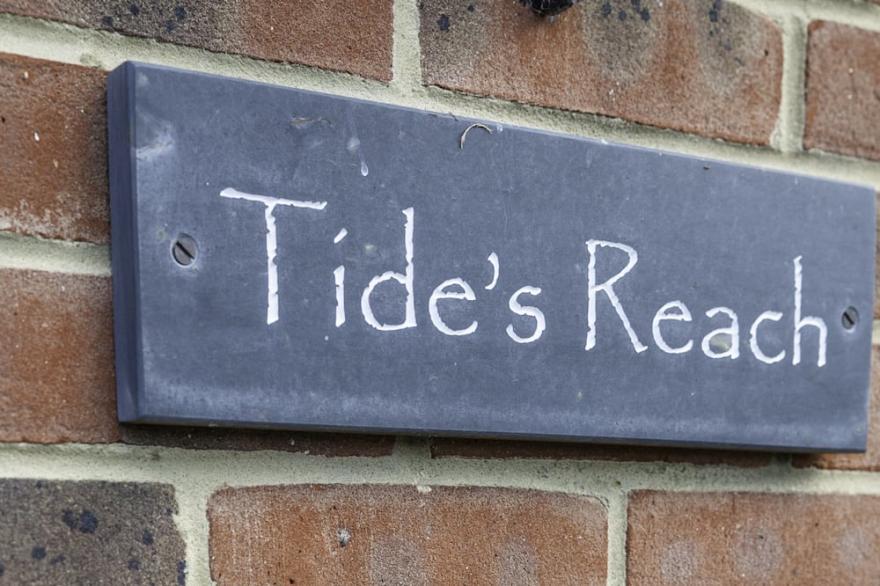 Tide's Reach